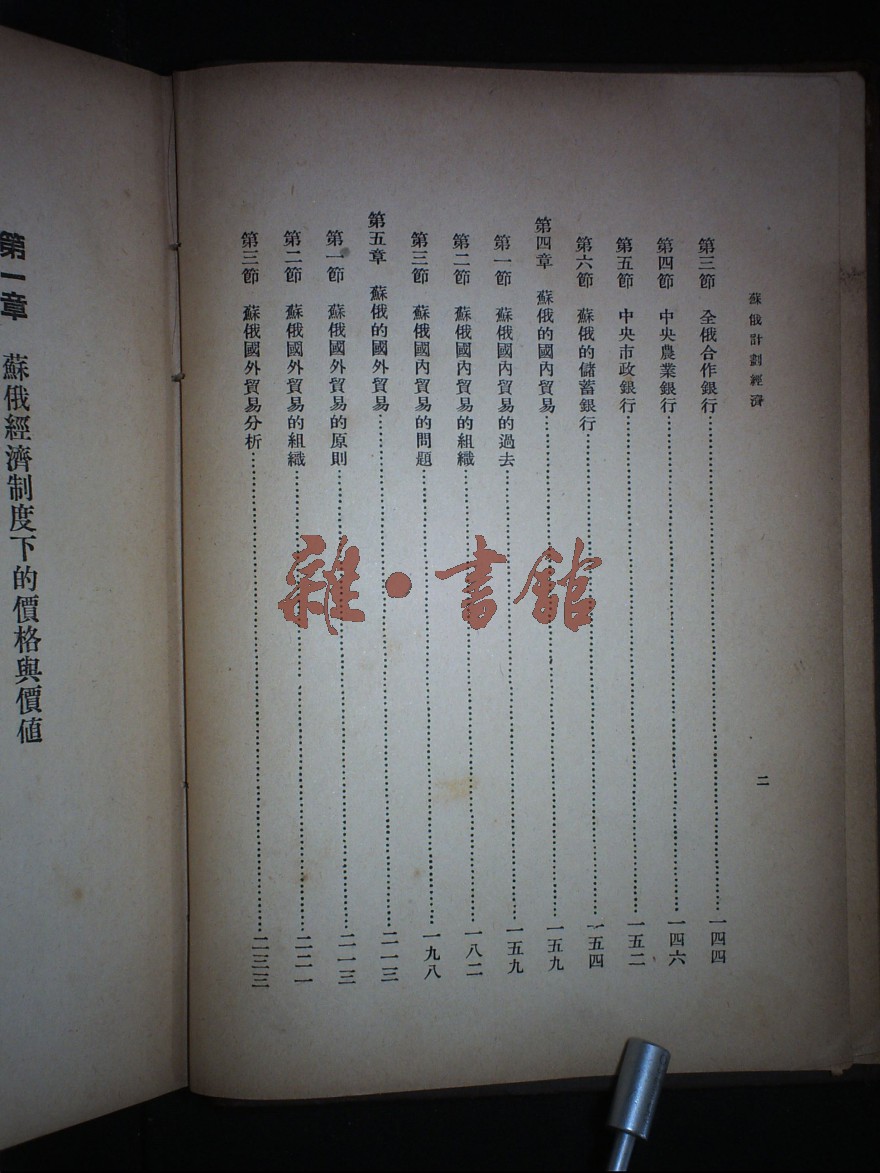 蘇俄計劃經濟
二
第三節 全俄合作銀行……一四四
第四節 中央農業銀行……一四六
第五節 中央市政銀行……一五二
第六節 蘇俄的儲蓄銀行……一五四
第四章 蘇俄的國內貿易……一五九
第一節 蘇俄國內貿易的過去……一五九
第二節 蘇俄國內貿易的組織……一八二
第三節 蘇俄國內貿易的問題……一九八
第五章 蘇俄的國外貿易……二一三
第一節 蘇俄國外貿易的原則……二一三
第二節 蘇俄國外貿易的組織……二二一
第三節 蘇俄國外貿易分析……二三三
第一章 蘇俄經濟制度下的價格與價值
雜·書館